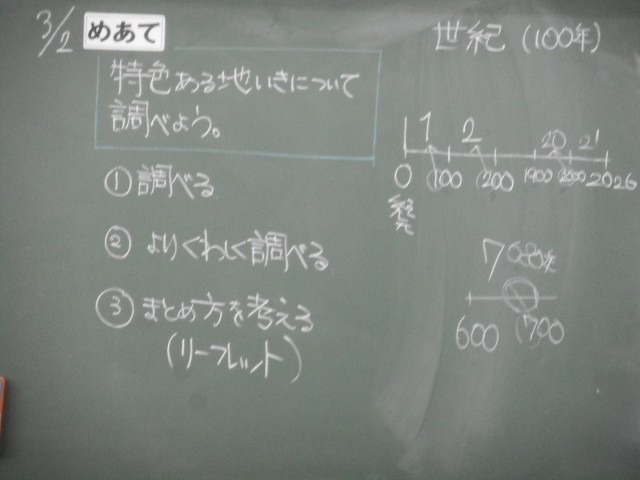 3/2 めあて
特色ある地いきについて
調べよう。
① 調べる
② よりくわしく調べる
③ まとめ方を考える
(リーフレット)
世紀 (100年)
1 2 20 21
0 100 200 1900 2000 2026
7
600 700